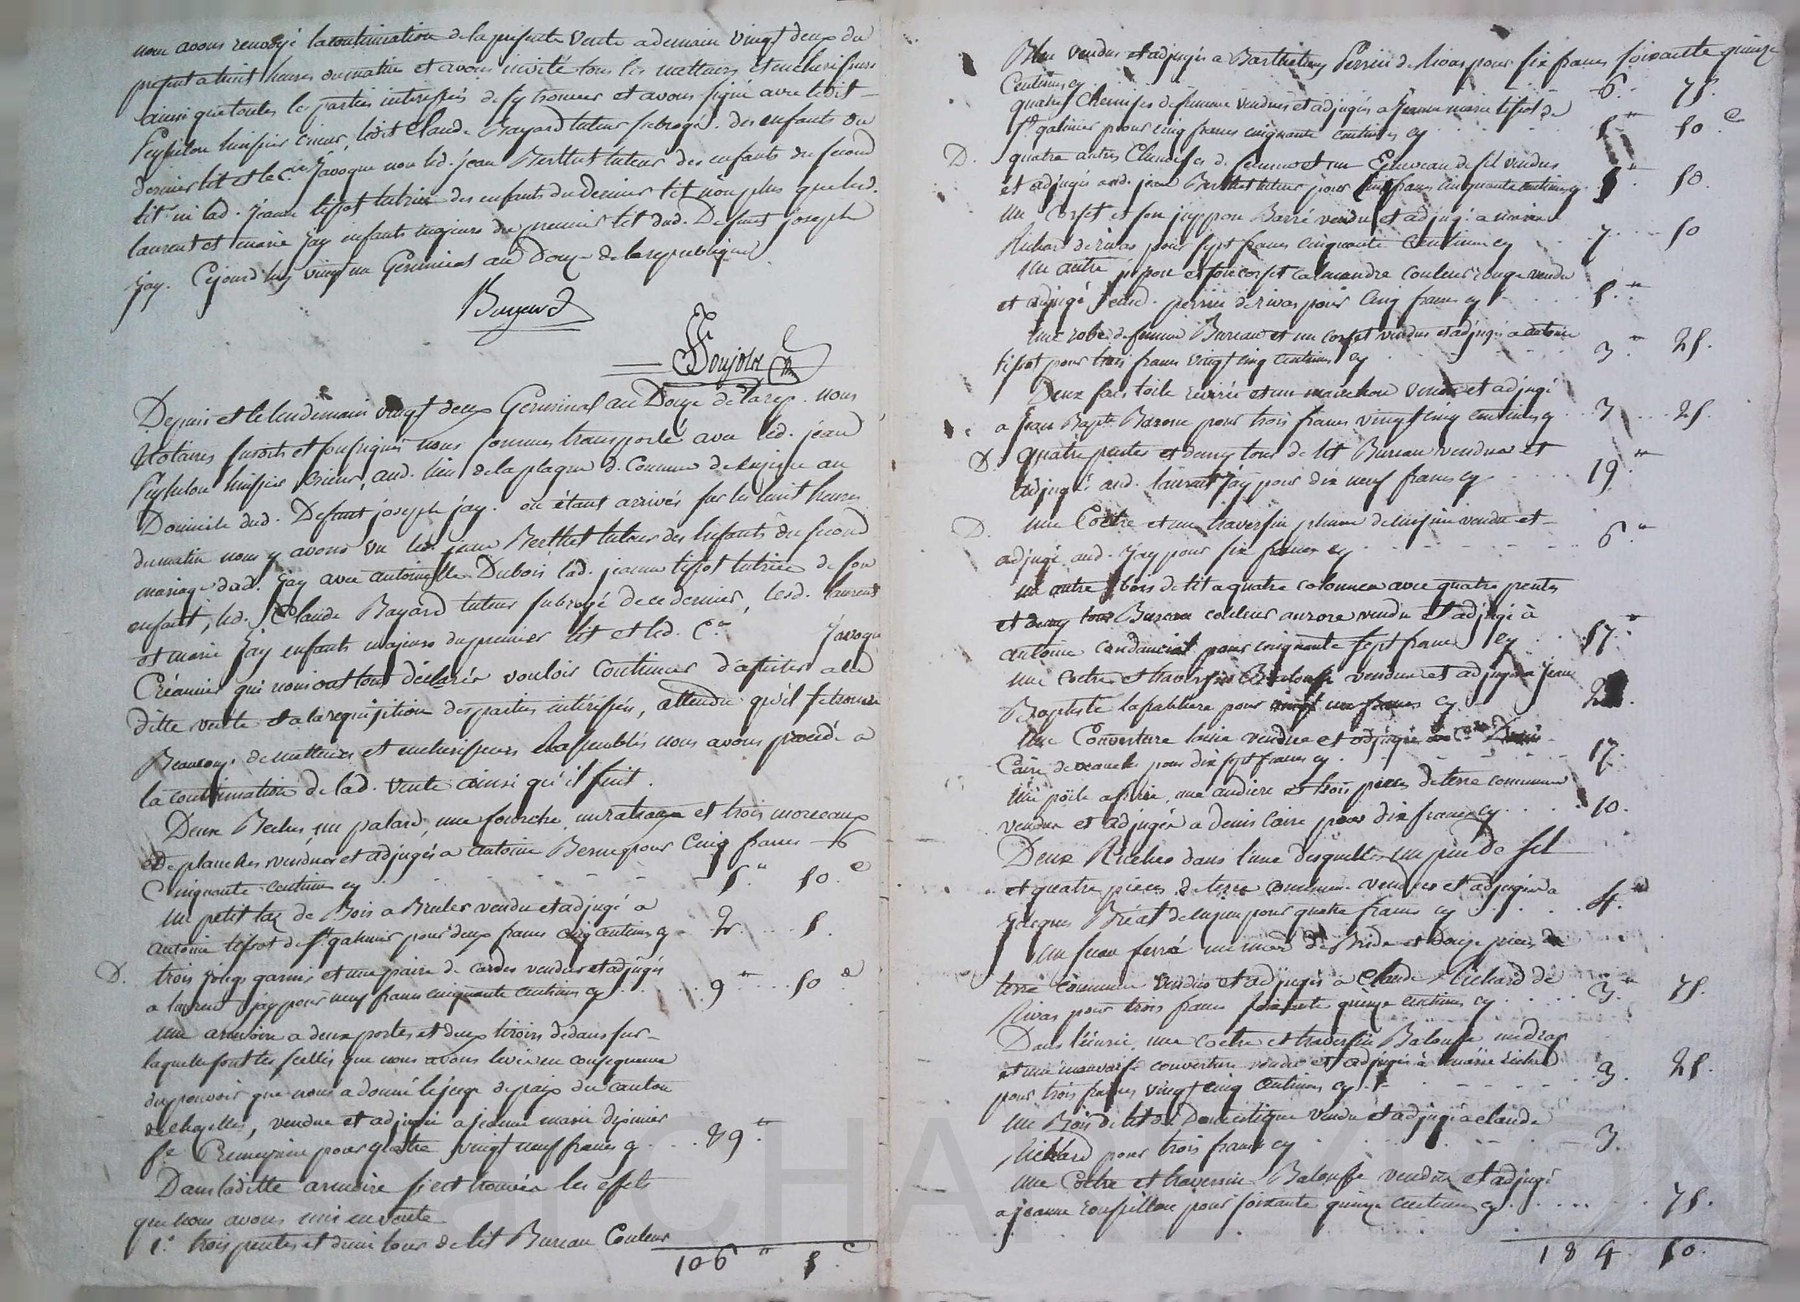 nous avons renvoyé la continuation de la presente vente a demain vingt deux du
present a huit heures du matin et avons invité tous les metteurs et encherisseurs
ainsi que toutes les parties interessés de s'y trouver et avons signé avec ledit
huissier crieur, ledit Claude Bayard tuteur subrogé des enfants du
dernier lit et le c.en Javogue non led. jean Berthet tuteur des enfants du second
lit ni lad. jeanne tissot tutrice des enfants du dernier lit non plus que led.
laurent et marie Jay enfants majeurs du premier lit dud. Defunt joseph
Jay. Cejourd'huy vingt un Germinal an Douze de la republique
Bayard
Depuis et le lendemain vingt deux Germinal an Douze de la rep. nous
Notaires susdits et soussignés nous sommes transporté avec led. jean
huissier Crieur, aud. lieu de la plagne d. Commune de au
Domicile dud. Defunt joseph jay. où étant arrivés sur les huit heures
du matin nous y avons vu led. jean Berthet tuteur des Enfants du second
mariage dud. Jay avec antoinette Dubois lad. jeanne tissot tutrice de son
enfant, led. Claude Bayard tuteur subrogé de ce dernier, lesd. laurent
et marie Jay enfants majeurs du premier lit et led. C.en Javogue
Créancier qui nous ont tous déclarés vouloir continuer d'assister a la
ditte vente et a la requisition des parties intéressées, attendu qu'il se trouve
Beaucoup de metteurs et encherisseurs Rassemblés nous avons procédé a
la continuation de lad. vente ainsi qu'il suit.
Deux Beches, un palard, une fourche, et trois morceaux
de planches vendues et adjugés a antoine pour Cinq francs
Cinquante centimes cy 5." 50 c
un petit tas de Bois a Bruler vendu et adjugé a
antoine tissot de s.t galmier pour deux francs cinq centimes cy 2 5.
D. trois jougs garnis et une paire de cardes vendus et adjugés
a laurent Jay pour neuf francs cinquante centimes cy 9" 50 c
une armoire a deux portes et deux tiroirs dedans sur
laquelle sont les scellés que nous avons levé en consequence
du pouvoir que nous a donné le juge de paix du canton
de chazelles, vendue et adjugée a jeanne marie
f.e pour quatre vingt neuf francs cy 89"
Dans laditte armoire s'est trouvée les effets
que nous avons mis en vente
1.° trois pentes et demi tour de lit Bureau Couleur
106" 5 c
Bleu vendus et adjugés a Barthelemy Perrin de Rivas pour six francs soixante quinze
Centimes cy 6" 75.
quatre Chemises de femme vendues et adjugés a jeanne marie tissot de
s.t galmier pour cinq francs cinquante centimes cy 5" 50 c
D. quatre autres Chemises de femme et un Echeveau de fil vendus
et adjugés aud. jean Berthet tuteur pour cinq francs cinquante centimes cy 5" 50.
un Corset et son juppon Barré vendu et adjugé a marie
Richard de rivas pour sept francs cinquante centimes cy 7 50
un autre jupon et son corset calmandre couleur rouge vendu
et adjugé aud. perrin de rivas pour Cinq francs cy 5"
une robe de femme Bureau et un corset vendus et adjugés a antoine
tissot pour trois francs vingt cinq centimes cy 3" 25.
Deux sacs toile et un vendus et adjugé
a jean Bapt.te Baron pour trois francs vingt cinq centimes cy 3 25.
D. quatre pentes et demy tour de lit Bureau vendues et
adjugés aud. laurent Jay pour dix neuf francs cy 19"
D. une Coëtre et un traversin plume de vendu et
adjugé aud. Jay pour six francs cy 6"
un autre bois de lit a quatre colonnes avec quatre pentes
et demy tour Bureau couleur aurore vendu et adjugé à
antoine pour cinquante sept francs cy 57"
une coëtre et traversin Balouffe vendue et adjugée a jean
Baptiste pour francs cy
une Couverture laine vendue et adjugée
Caire de pour dix sept francs cy 17.
une poële a frire, une et trois pieces de terre commune
vendue et adjugés a denis Caire pour dix francs cy 10.
Deux Riches dans l'une desquelles un peu de sel
et quatre pieces de terre commune vendues et adjugés a
jacques pour quatre francs cy 4"
un seau ferré de Bride et Douze pieces de
terre commune vendus et adjugés à Claude Richard de
Rivas pour trois francs soixante quinze centimes cy 3" 75.
Dans l'écurie, une coëtre et traversin Balouffe un drap
et une mauvaise couverture vendus et adjugés à marie Richard
pour trois francs vingt cinq centimes cy 3. 25.
un Bois de lit de Domestique vendu et adjugé a claude
Richard pour trois francs cy 3.
une Coëtre et traversin Balouffe vendus et adjugé
a jeanne pour soixante quinze centimes cy 75.
184. 50.